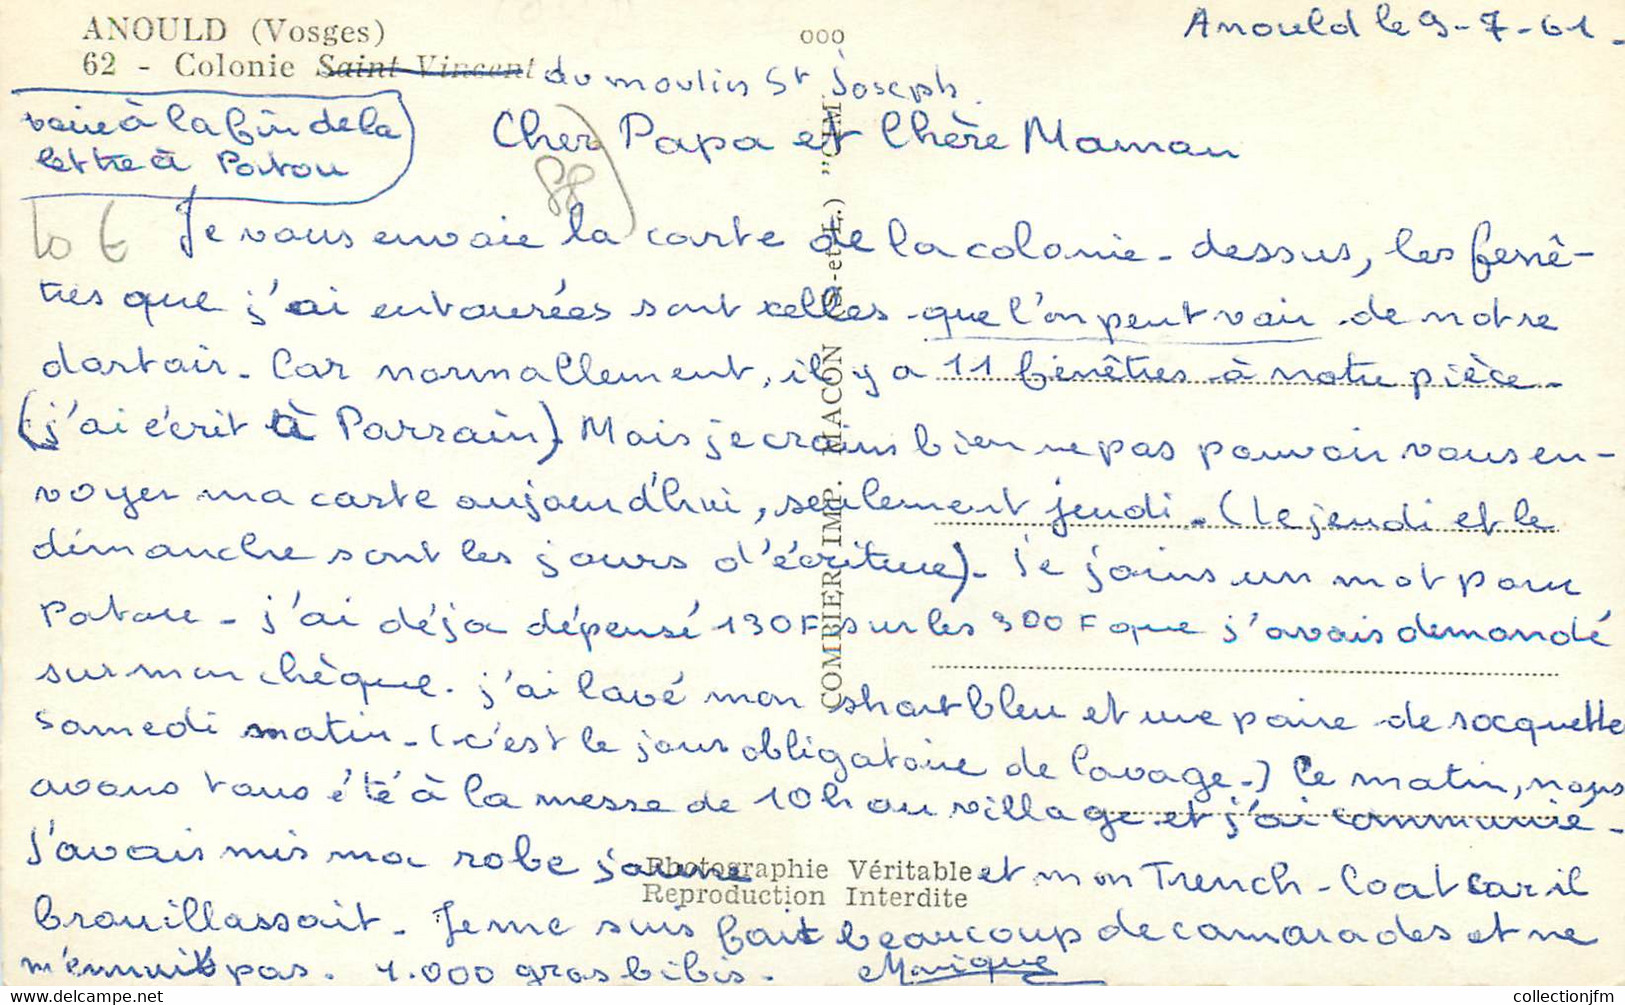 ANOULD (Vosges)
62 - Colonie Saint Vincent du moulin St Joseph.
000
Anould le 9-7-61 -
voire à la fin de la
lettre à Patou
Cher Papa et Chère Maman
88
10 €
Je vous envoie la carte de la colonie - dessus, les fenê-
tres que j'ai entourées sont celles que l'on peut voir de notre
dortoir - Car normallement, il y a 11 fenêtres à notre pièce -
(j'ai écrit à Parrain). Mais je crains bien ne pas pouvoir vous en-
voyer ma carte aujourd'hui, seulement jeudi - (le jeudi et le
dimanche sont les jours d'écriture) - Je joins un mot pour
Patou - j'ai déja dépensé 130F sur les 300F que j'avais demandé
sur mon chèque. j'ai lavé mon short bleu et une paire de socquette
samedi matin - (c'est le jour obligatoire de lavage -) Ce matin, nous
avons tous été à la messe de 10h au village et j'ai communié -
J'avais mis ma robe jaune et mon Trench-Coat car il
brouillassait - Je me suis fait beaucoup de camarades et ne
m'ennuit pas. 1.000 gros bibis - Monique
COMBIER IMP. MACON (S.-et-L.) "CIM"
Photographie Véritable
Reproduction Interdite
collectionjfm